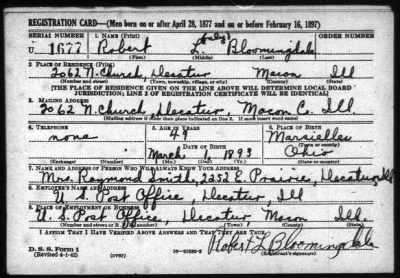 REGISTRATION CARD—(Men born on or after April 28, 1877 and on or before February 16, 1897)
SERIAL NUMBER 1. NAME (Print) ORDER NUMBER
U 1677 Robert L. (only) Bloomingdale
(First) (Middle) (Last)
2. PLACE OF RESIDENCE (Print)
2062 N. Church, Decatur Macon Ill
(Number and street) (Town, township, village, or city) (County) (State)
[THE PLACE OF RESIDENCE GIVEN ON THE LINE ABOVE WILL DETERMINE LOCAL BOARD
JURISDICTION; LINE 2 OF REGISTRATION CERTIFICATE WILL BE IDENTICAL]
3. MAILING ADDRESS
2062 N. Church, Decatur, Macon C. Ill
(Mailing address if other than place indicated on line 2. If same insert word same)
4. TELEPHONE 5. AGE IN YEARS 6. PLACE OF BIRTH
none 49 Marseilles
DATE OF BIRTH
March 1 1893 Ohio
(Exchange) (Number) (Mo.) (Day) (Yr.) (State or country)
7. NAME AND ADDRESS OF PERSON WHO WILL ALWAYS KNOW YOUR ADDRESS
Mrs. Raymond Smith, 2252 E. Prairie, Decatur, Ill
8. EMPLOYER'S NAME AND ADDRESS
U. S. Post Office, Decatur, Ill
9. PLACE OF EMPLOYMENT OR BUSINESS
U. S. Post Office, Decatur Macon Ill.
(Number and street or R. F. D. number) (Town) (County) (State)
I AFFIRM THAT I HAVE VERIFIED ABOVE ANSWERS AND THAT THEY ARE TRUE.
Robert L Bloomingdale
D. S. S. Form 1
(Revised 4-1-42) (over) (Registrant's signature)